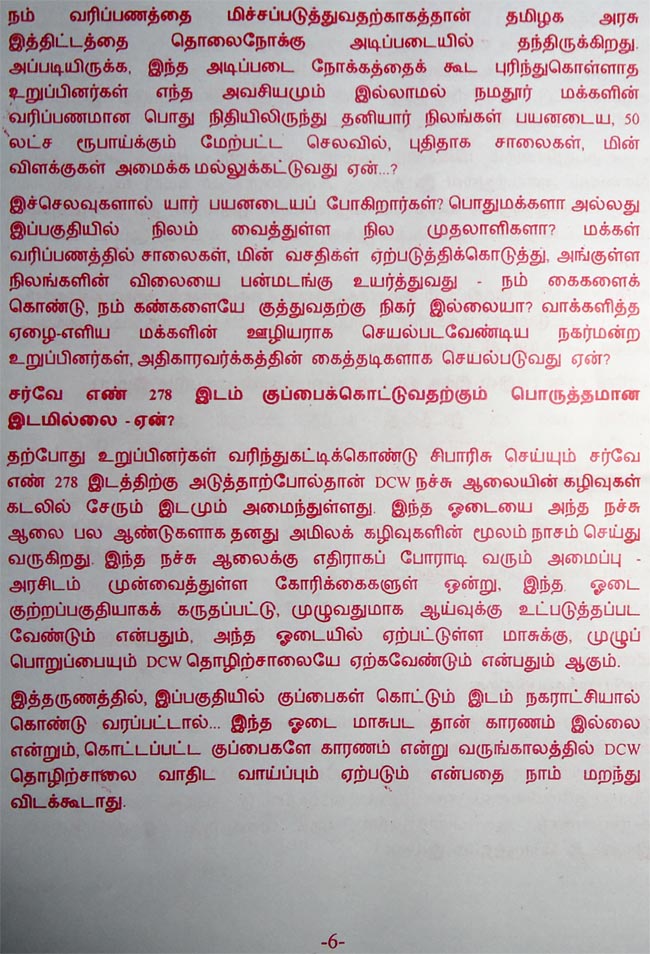 நம் வரிப்பணத்தை மிச்சப்படுத்துவதற்காகத்தான் தமிழக அரசு
இத்திட்டத்தை தொலைநோக்கு அடிப்படையில் தந்திருக்கிறது.
அப்படியிருக்க, இந்த அடிப்படை நோக்கத்தைக் கூட புரிந்துகொள்ளாத
உறுப்பினர்கள் எந்த அவசியமும் இல்லாமல் நமதூர் மக்களின்
வரிப்பணமான பொது நிதியிலிருந்து தனியார் நிலங்கள் பயனடைய, 50
லட்ச ரூபாய்க்கும் மேற்பட்ட செலவில், புதிதாக சாலைகள், மின்
விளக்குகள் அமைக்க மல்லுக்கட்டுவது ஏன்...?
இச்செலவுகளால் யார் பயனடையப் போகிறார்கள்? பொதுமக்களா அல்லது
இப்பகுதியில் நிலம் வைத்துள்ள நில முதலாளிகளா? மக்கள்
வரிப்பணத்தில் சாலைகள், மின் வசதிகள் ஏற்படுத்திக்கொடுத்து, அங்குள்ள
நிலங்களின் விலையை பன்மடங்கு உயர்த்துவது - நம் கைகளைக்
கொண்டு, நம் கண்களையே குத்துவதற்கு நிகர் இல்லையா? வாக்களித்த
ஏழை-எளிய மக்களின் ஊழியராக செயல்படவேண்டிய நகர்மன்ற
உறுப்பினர்கள், அதிகாரவர்க்கத்தின் கைத்தடிகளாக செயல்படுவது ஏன்?
சர்வே எண் 278 இடம் குப்பைக்கொட்டுவதற்கும் பொருத்தமான
இடமில்லை - ஏன்?
தற்போது உறுப்பினர்கள் வரிந்துகட்டிக்கொண்டு சிபாரிசு செய்யும் சர்வே
எண் 278 இடத்திற்கு அடுத்தாற்போல்தான் DCW நச்சு ஆலையின் கழிவுகள்
கடலில் சேரும் இடமும் அமைந்துள்ளது. இந்த ஓடையை அந்த நச்சு
ஆலை பல ஆண்டுகளாக தனது அமிலக் கழிவுகளின் மூலம் நாசம் செய்து
வருகிறது. இந்த நச்சு ஆலைக்கு எதிராகப் போராடி வரும் அமைப்பு -
அரசிடம் முன்வைத்துள்ள கோரிக்கைகளுள் ஒன்று, இந்த ஓடை
குற்றப்பகுதியாகக் கருதப்பட்டு, முழுவதுமாக ஆய்வுக்கு உட்படுத்தப்பட
வேண்டும் என்பதும், அந்த ஓடையில் ஏற்பட்டுள்ள மாசுக்கு, முழுப்
பொறுப்பையும் DCW தொழிற்சாலையே ஏற்கவேண்டும் என்பதும் ஆகும்.
இத்தருணத்தில், இப்பகுதியில் குப்பைகள் கொட்டும் இடம் நகராட்சியால்
கொண்டு வரப்பட்டால்... இந்த ஓடை மாசுபட தான் காரணம் இல்லை
என்றும், கொட்டப்பட்ட குப்பைகளே காரணம் என்று வருங்காலத்தில் DCW
தொழிற்சாலை வாதிட வாய்ப்பும் ஏற்படும் என்பதை நாம் மறந்து
விடக்கூடாது.
-6-